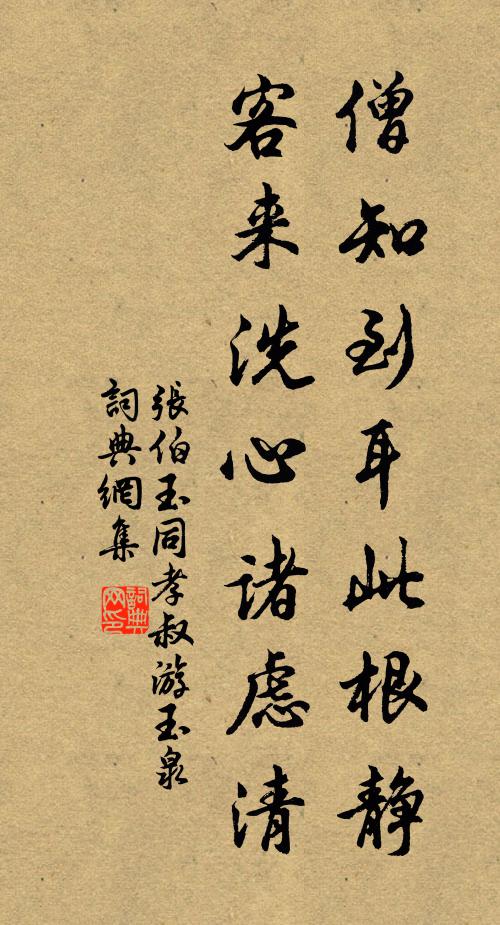 僧知到耳此根静
客来洗心诸虑清
張伯玉同孝叔游玉泉
詞典網集
詞典网印